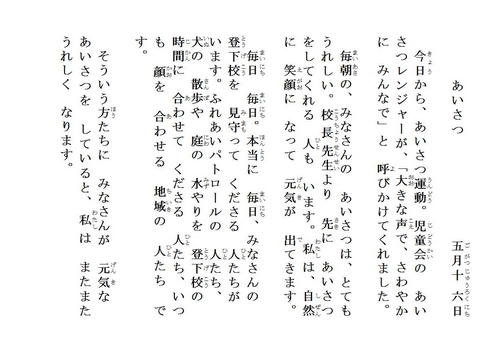 あいさつ
五月十六日
今日から、あいさつ運動。児童会の あい
さつレンジャーが、「大きな声で、さわやか
に みんなで」と 呼びかけてくれました。
毎朝の、みなさんの あいさつは、とても
うれしい。校長先生より 先に あいさつ
をしてくれる 人も います。私は、自然
に 笑顔に なって 元気が 出てきます。
毎日 毎日。本当に 毎日、みなさんの
登下校を 見守って くださる 人たちが
います。ふれあいパトロールの 人たち、
犬の 散歩や 庭の 水やりを 登下校の
時間に 合わせて くださる 人たち、いつ
も 顔を 合わせる 地域の 人たち で
す。
そういう方たちに みなさんが 元気な
あいさつを していると、私は またまた
うれしく なります。